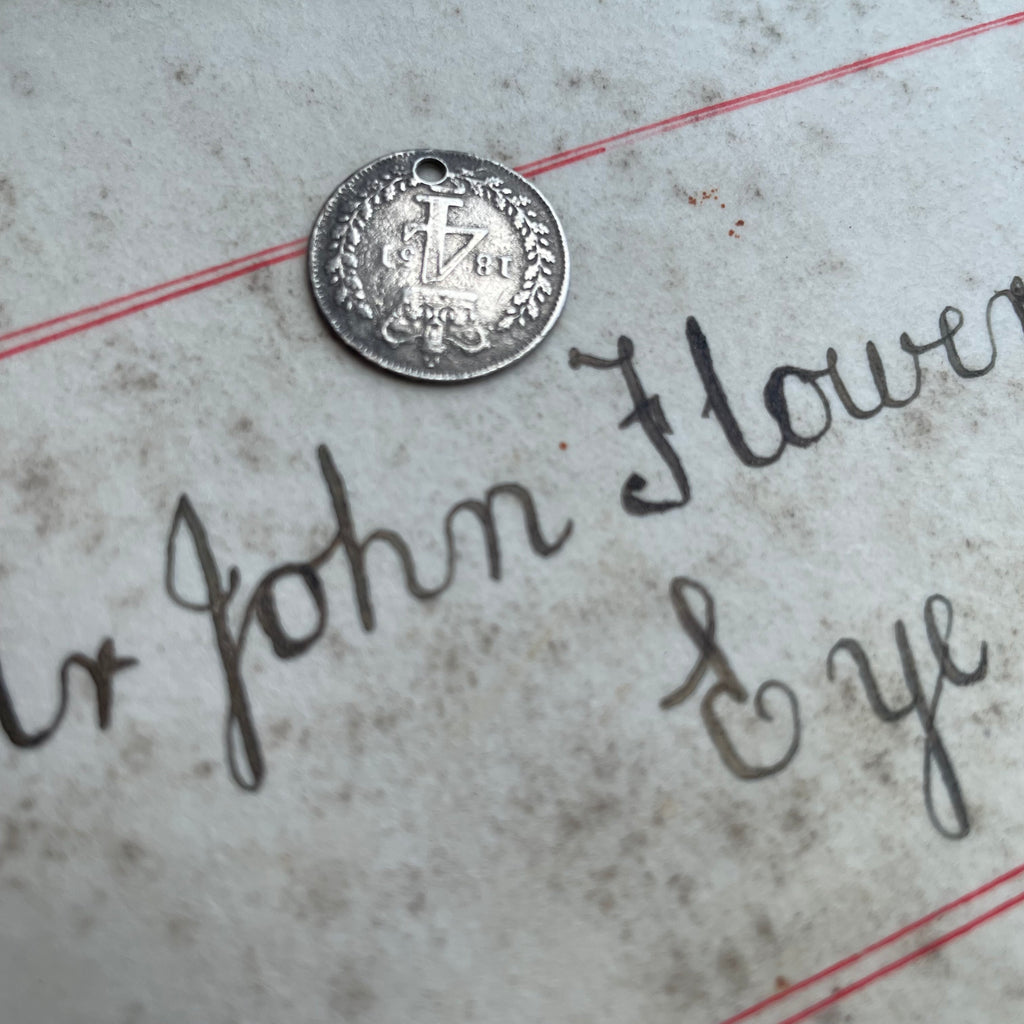 18 4 61
Mr John Flower
Eye